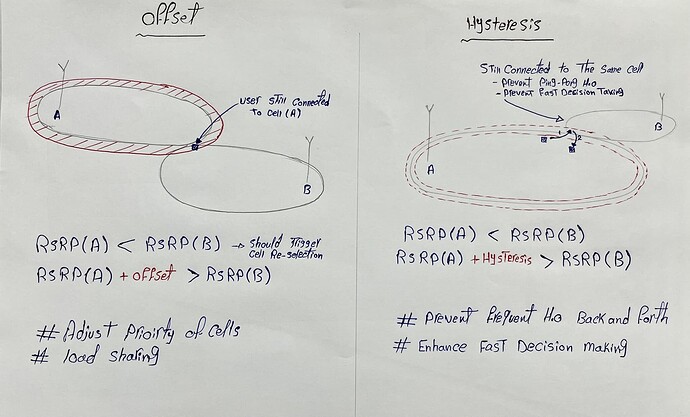 Offset
A
USER Still Connected
To Cell (A)
B
RSRP(A) < RSRP(B) → Should Trigger
Cell Re-selection
RSRP(A) + offset > RSRP(B)
# Adjust Prioirty of Cells
# Load Sharing
Hysteresis
Still Connected to The Same Cell
- Prevent Ping-Pong H.o
- Prevent Fast Decision Taking
B
1
2
A
RSRP(A) < RSRP(B)
RSRP(A) + Hysteresis > RSRP(B)
# Prevent Frequent H.o Back and Forth
# Enhance Fast Decision making